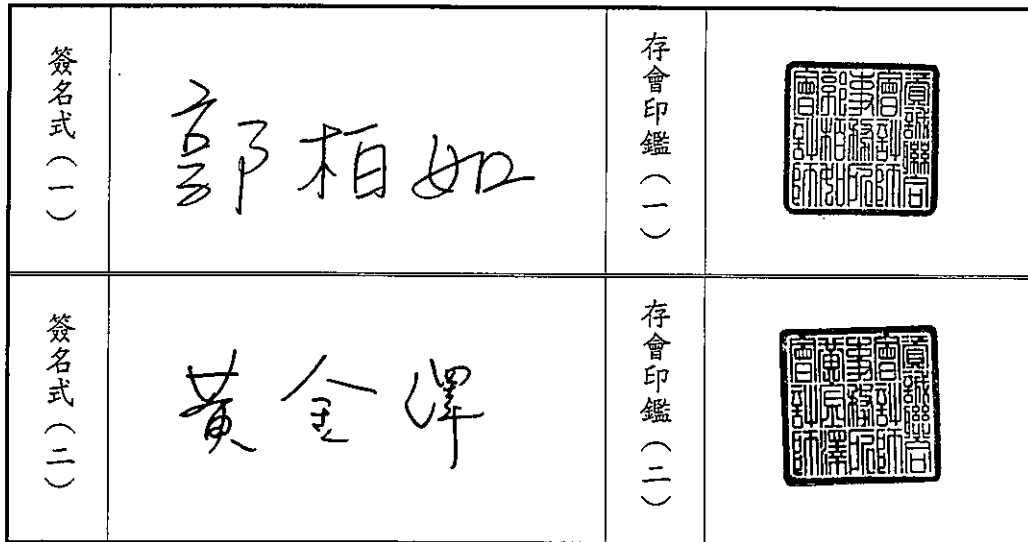 簽名式（一）
郭柏如
存會印鑑（一）
資誠聯合
會計師
事務所
郭柏如
會計師
簽名式（二）
黃金澤
存會印鑑（二）
資誠聯合
會計師
事務所
黃金澤
會計師